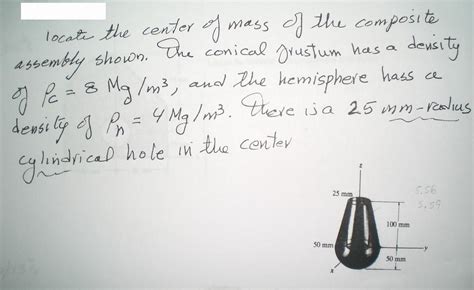 locate the center of mass of the composite
assembly shown. The conical frustum has a density
of ρc = 8 Mg/m³, and the hemisphere hass a
density of ρh = 4 Mg/m³. There is a 25 mm-radius
cylindrical hole in the center
z
25 mm
5.56
5.59
100 mm
50 mm
y
50 mm
x